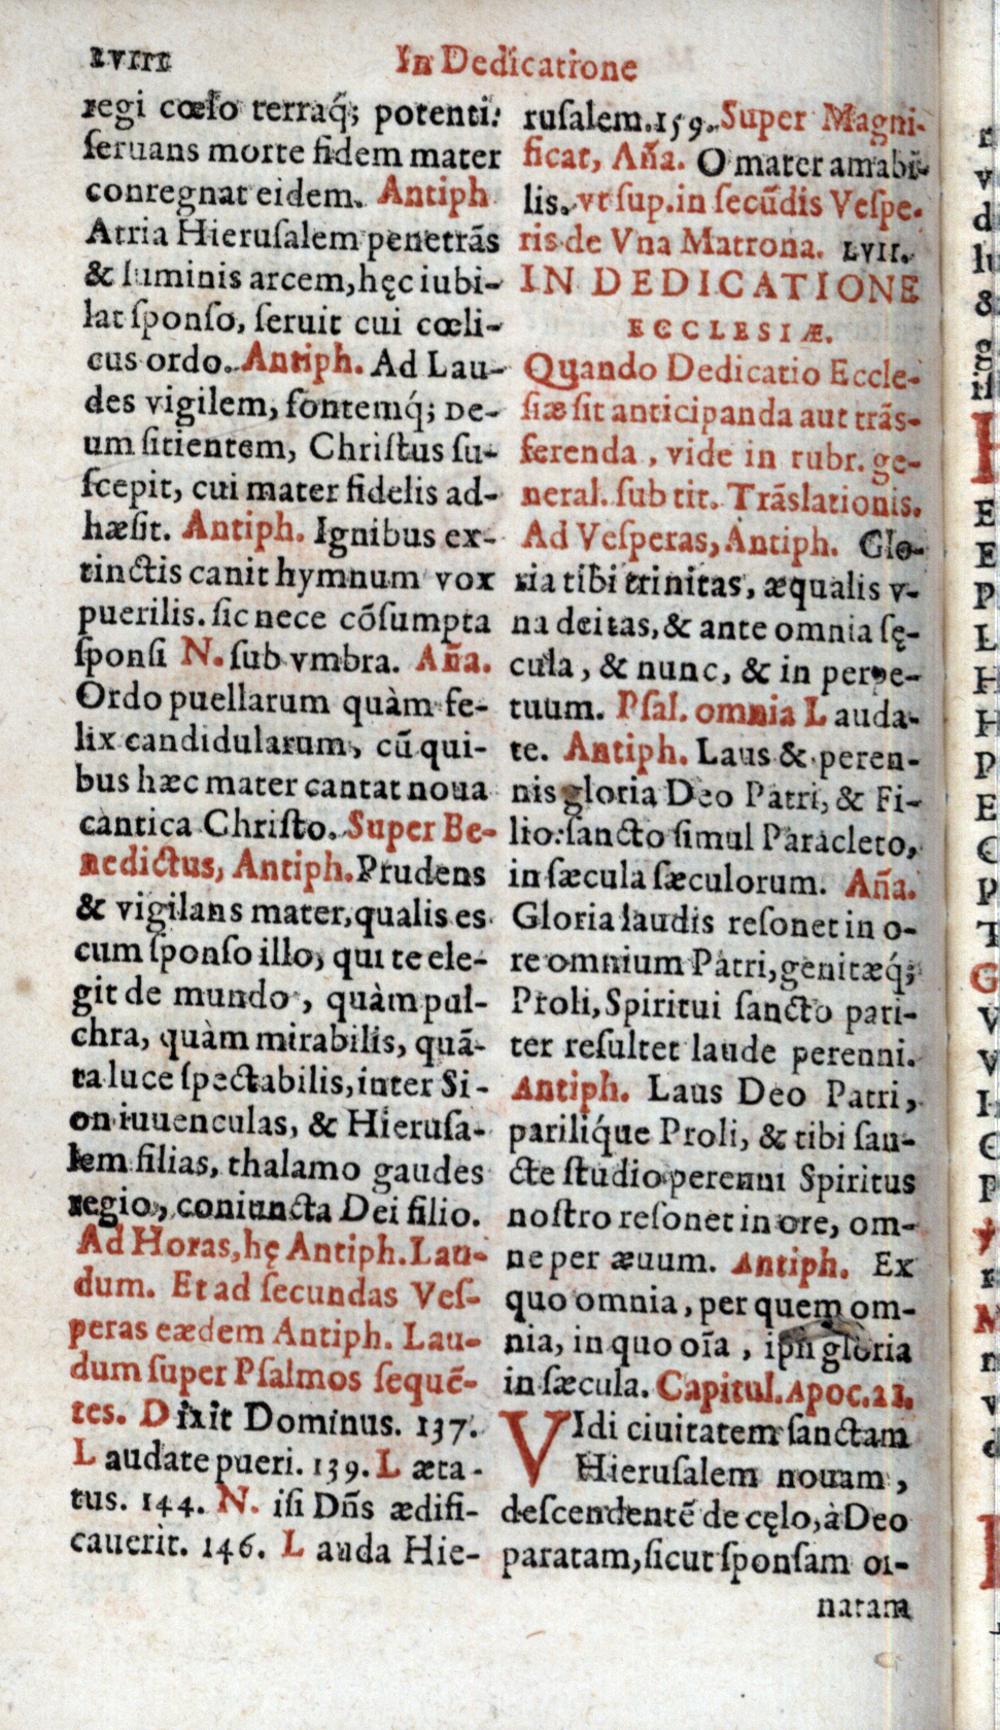 LVIII
In Dedicatione
regi cœlo terraq́; potenti:
ſeruans morte fidem mater
conregnat eidem. Antiph
Atria Hieruſalem penetrãs
& luminis arcem, hęc iubi-
lat ſponſo, ſeruit cui cœli-
cus ordo. Antiph. Ad Lau-
des vigilem, fontemq́; De-
um ſitientem, Chriſtus ſu-
ſcepit, cui mater fidelis ad-
hæſit. Antiph. Ignibus ex-
tinctis canit hymnum vox
puerilis. ſic nece cõſumpta
ſponſi N. ſub vmbra. Aña.
Ordo puellarum quàm fe-
lix candidularum, cũ qui-
bus hæc mater cantat noua
cantica Chriſto. Super Be-
nedictus, Antiph. Prudens
& vigilans mater, qualis es
cum ſponſo illo, qui te ele-
git de mundo, quàm pul-
chra, quàm mirabilis, quã-
ta luce ſpectabilis, inter Si-
on iuuenculas, & Hieruſa-
lem filias, thalamo gaudes
regio, coniuncta Dei filio.
Ad Horas, hę Antiph. Lau-
dum. Et ad ſecundas Veſ-
peras eædem Antiph. Lau-
dum ſuper Pſalmos ſequẽ-
tes. Dixit Dominus. 137.
Laudate pueri. 139. Læta-
tus. 144. N. iſi Dñs ædifi-
cauerit. 146. Lauda Hie-
ruſalem. 159. Super Magni-
ficat, Aña. O mater amabi-
lis. vt ſup. in ſecũdis Veſpe-
ris de Vna Matrona. LVII.
IN DEDICATIONE
ECCLESIÆ.
Quando Dedicatio Eccle-
ſiæ ſit anticipanda aut trãs-
ferenda, vide in rubr. ge-
neral. ſub tit. Trãslationis.
Ad Veſperas, Antiph. Glo-
ria tibi trinitas, æqualis v-
na deitas, & ante omnia ſę-
cula, & nunc, & in perpe-
tuum. Pſal. omnia Lauda-
te. Antiph. Laus & peren-
nis gloria Deo Patri, & Fi-
lio: ſancto ſimul Paracleto,
in ſæcula ſæculorum. Aña.
Gloria laudis reſonet in o-
re omnium Patri, genitæq́;
Proli, Spiritui ſancto pari-
ter reſultet laude perenni.
Antiph. Laus Deo Patri,
pariliq́ue Proli, & tibi ſan-
cte ſtudio perenni Spiritus
noſtro reſonet in ore, om-
ne per æuum. Antiph. Ex
quo omnia, per quem om-
nia, in quo oĩa, ipſi gloria
in ſæcula. Capitul. Apoc. 21.
VIdi ciuitatem ſanctam
Hieruſalem nouam,
deſcendentẽ de cęlo, à Deo
paratam, ſicut ſponſam or-
natam